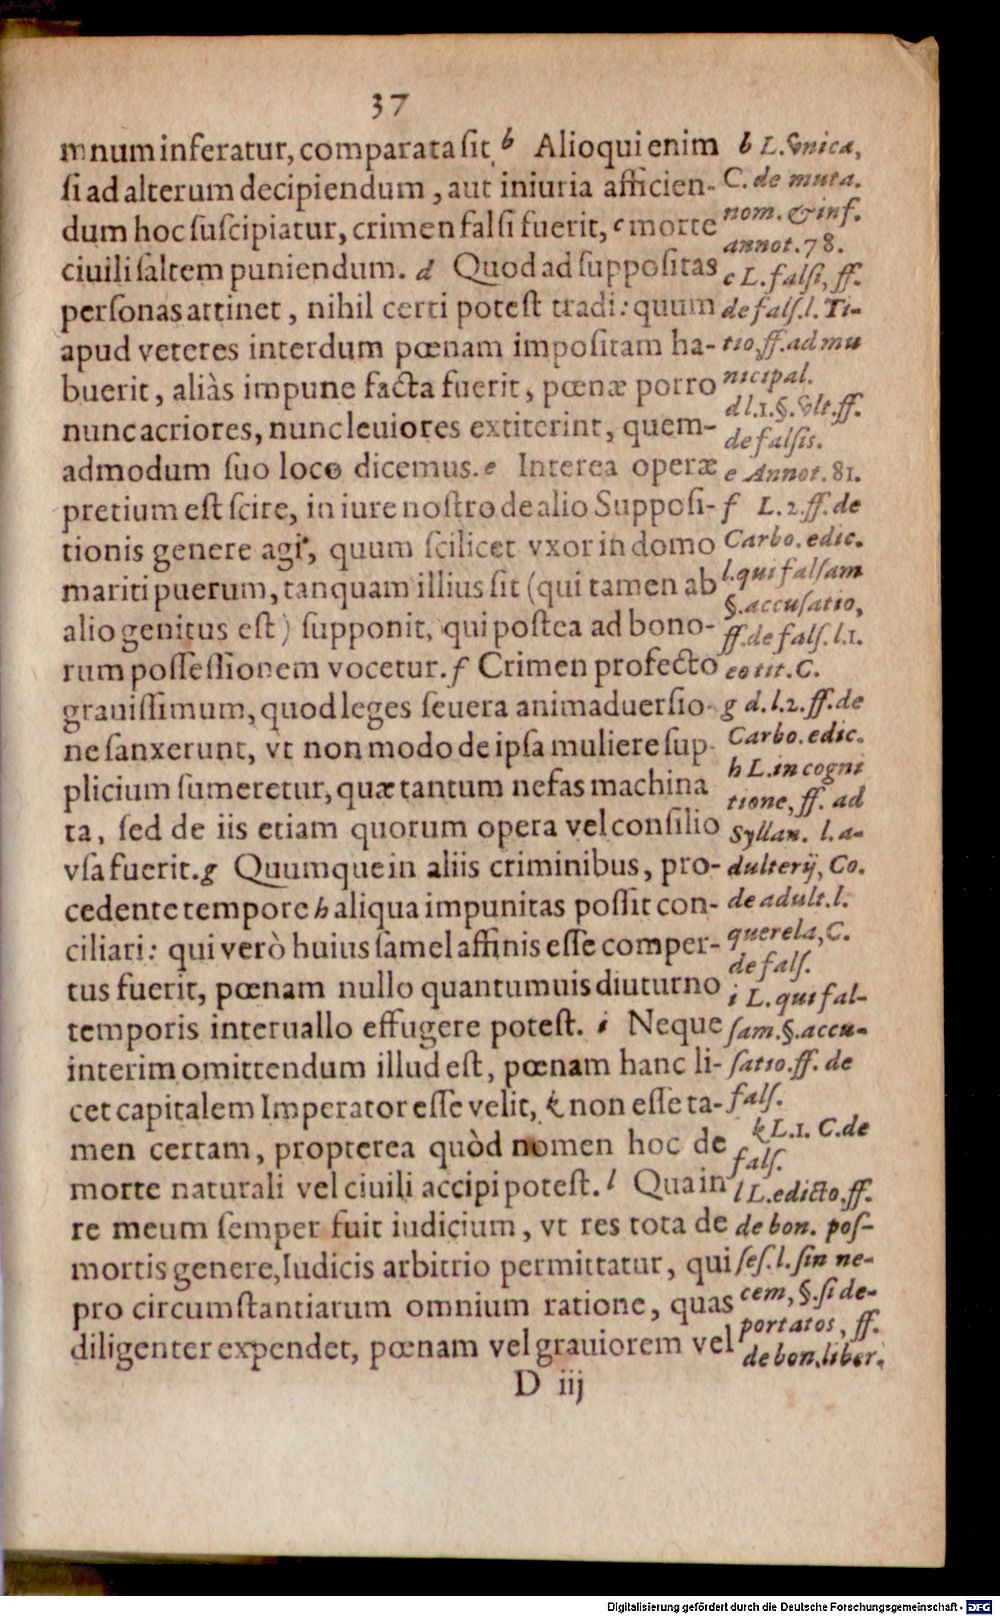 37
mnum inferatur, comparata sit. b Alioqui enim
si ad alterum decipiendum, aut iniuria afficien-
dum hoc suscipiatur, crimen falsi fuerit, c morte
ciuili saltem puniendum. d Quod ad suppositas
personas attinet, nihil certi potest tradi: quum
apud veteres interdum pœnam impositam ha-
buerit, aliàs impune facta fuerit, pœnæ porro
nunc acriores, nunc leuiores extiterint, quem-
admodum suo loco dicemus. e Interea operæ
pretium est scire, in iure nostro de alio Supposi-
tionis genere agi, quum scilicet vxor in domo
mariti puerum, tanquam illius sit (qui tamen ab
alio genitus est) supponit, qui postea ad bono-
rum possessionem vocetur. f Crimen profecto
grauissimum, quod leges seuera animaduersio-
ne sanxerunt, vt non modo de ipsa muliere sup-
plicium sumeretur, quæ tantum nefas machina
ta, sed de iis etiam quorum opera vel consilio
vsa fuerit. g Quumque in aliis criminibus, pro-
cedente tempore h aliqua impunitas possit con-
ciliari: qui verò huius samel affinis esse comper-
tus fuerit, pœnam nullo quantumuis diuturno
temporis interuallo effugere potest. i Neque
interim omittendum illud est, pœnam hanc li-
cet capitalem Imperator esse velit, k non esse ta-
men certam, propterea quòd nomen hoc de
morte naturali vel ciuili accipi potest. l Qua in
re meum semper fuit iudicium, vt res tota de
mortis genere, Iudicis arbitrio permittatur, qui
pro circumstantiarum omnium ratione, quas
diligenter expendet, pœnam vel grauiorem vel
D iij
b L. vnica,
C. de muta.
nom. & inf.
annot. 78.
c L. falsi, ff.
de fals. l. Ti-
tio, ff. ad mu
nicipal.
d l. 1. §. vlt. ff.
de falsis.
e Annot. 81.
f L. 2. ff. de
Carbo. edic.
l. qui falsam
§. accusatio,
ff. de fals. l. 1.
eo tit. C.
g d. l. 2. ff. de
Carbo. edic.
h L. in cogni
tione, ff. ad
Syllan. l. a-
dulterij, Co.
de adult. l.
querela, C.
de fals.
i L. qui fal-
sam. §. accu-
satio. ff. de
fals.
k L. 1. C. de
fals.
l L. edicto, ff.
de bon. pos-
ses. l. sin ne-
cem, §. si de-
portatos, ff.
de bon. liber.
Digitalisierung gefördert durch die Deutsche Forschungsgemeinschaft - DFG